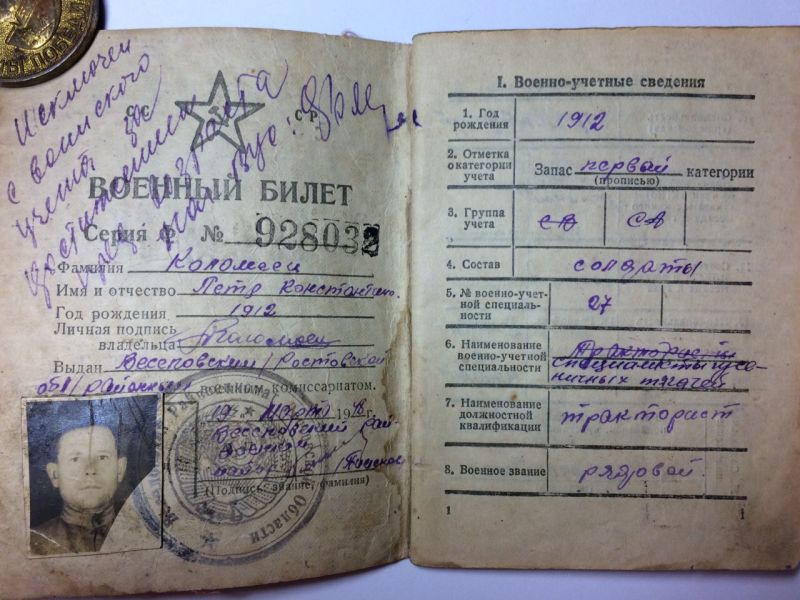 ПОБЕДИ
Исключен
с воинского
учета по
достижении
пред. возраста
С С С Р
ВОЕННЫЙ БИЛЕТ
Серия Ф № 928032
Фамилия Коломеец
Имя и отчество Петр Константино.
Год рождения 1912
Личная подпись
владельца Коломеец
Выдан Веселовским / Ростовской
обл / районным военным комиссариатом.
19 Марта 1948 г.
Веселовский рай
военком
майор
(Подпись, звание, фамилия)
Области
I. Военно-учетные сведения
1. Год рождения 1912
2. Отметка о категории учета Запас первой категории
(прописью)
3. Группа учета СА СА
4. Состав солдаты
5. № военно-учетной специальности 27
6. Наименование военно-учетной специальности Трактористы
специалисты гусе-
ничных тягачей
7. Наименование должностной квалификации тракторист
8. Военное звание рядовой
1
1